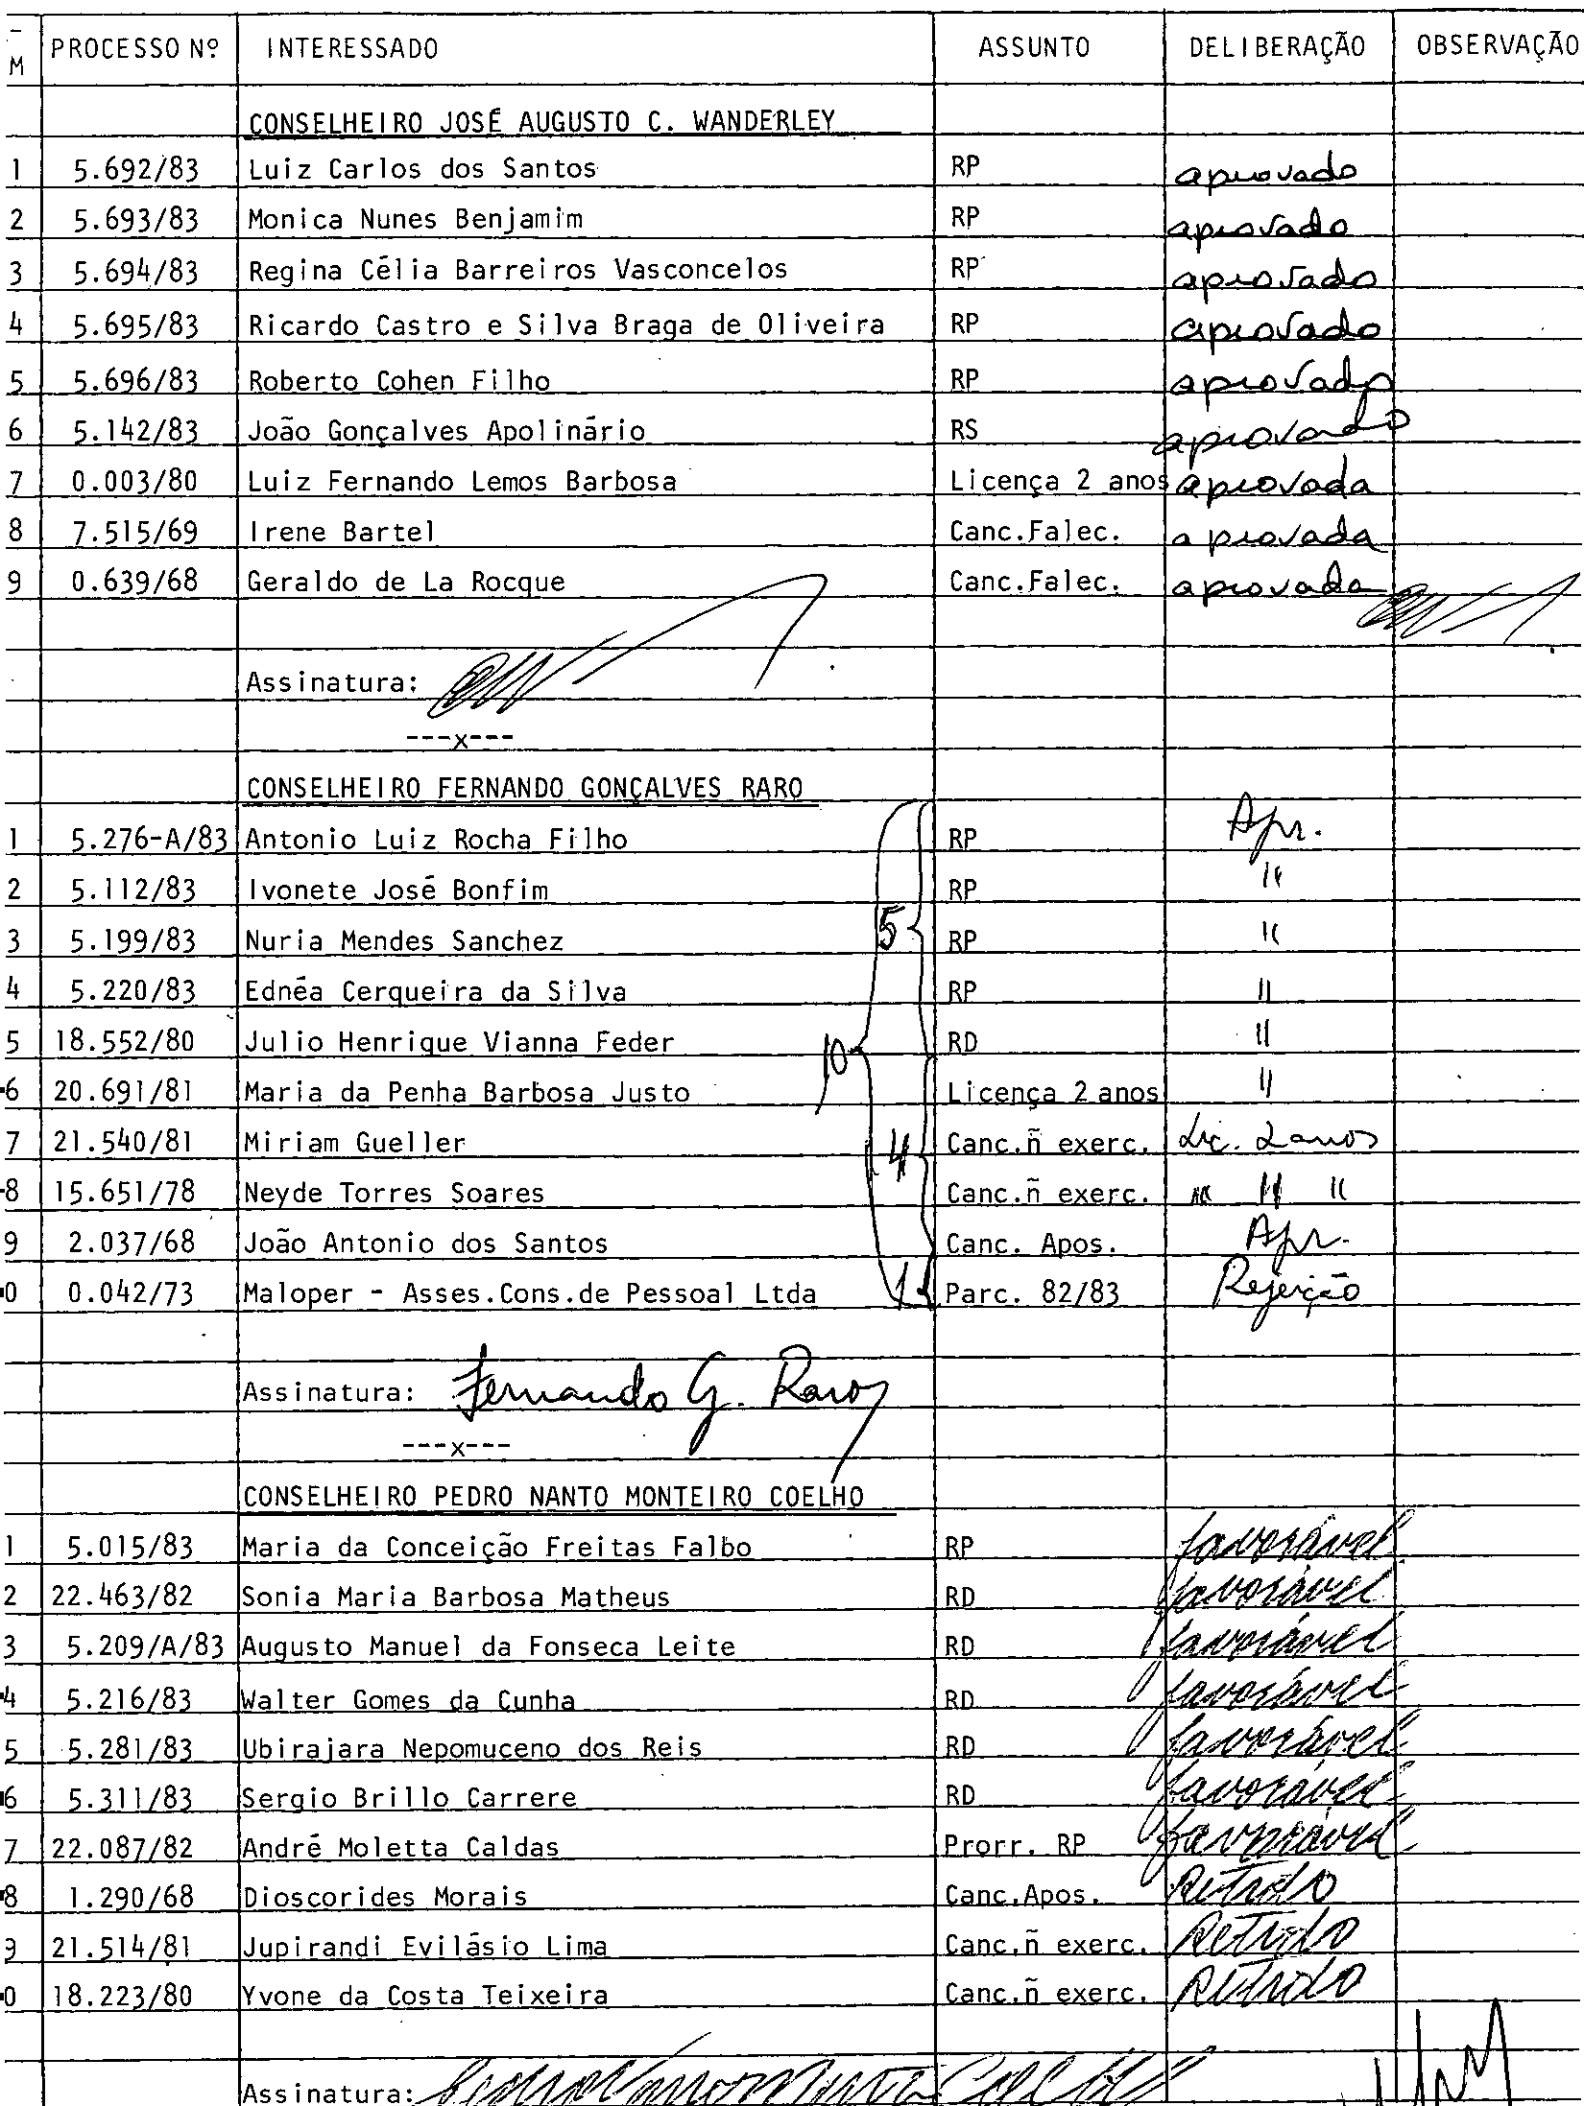 M PROCESSO Nº INTERESSADO ASSUNTO DELIBERAÇÃO OBSERVAÇÃO
CONSELHEIRO JOSÉ AUGUSTO C. WANDERLEY
1 5.692/83 Luiz Carlos dos Santos RP aprovado
2 5.693/83 Monica Nunes Benjamim RP aprovado
3 5.694/83 Regina Célia Barreiros Vasconcelos RP aprovado
4 5.695/83 Ricardo Castro e Silva Braga de Oliveira RP aprovado
5 5.696/83 Roberto Cohen Filho RP aprovado
6 5.142/83 João Gonçalves Apolinário RS aprovado
7 0.003/80 Luiz Fernando Lemos Barbosa Licença 2 anos aprovada
8 7.515/69 Irene Bartel Canc.Falec. aprovada
9 0.639/68 Geraldo de La Rocque Canc.Falec. aprovada
Assinatura:
---x---
CONSELHEIRO FERNANDO GONÇALVES RARO
1 5.276-A/83 Antonio Luiz Rocha Filho RP Apr.
2 5.112/83 Ivonete José Bonfim RP "
3 5.199/83 Nuria Mendes Sanchez 5 RP "
4 5.220/83 Ednéa Cerqueira da Silva RP "
5 18.552/80 Julio Henrique Vianna Feder 10 RD "
6 20.691/81 Maria da Penha Barbosa Justo Licença 2 anos "
7 21.540/81 Miriam Gueller 4 Canc.ñ exerc. Lic. 2 anos
8 15.651/78 Neyde Torres Soares Canc.ñ exerc. " " "
9 2.037/68 João Antonio dos Santos Canc. Apos. Apr.
0 0.042/73 Maloper - Asses.Cons.de Pessoal Ltda 1 Parc. 82/83 Rejeição
Assinatura: Fernando G. Raro
---x---
CONSELHEIRO PEDRO NANTO MONTEIRO COELHO
1 5.015/83 Maria da Conceição Freitas Falbo RP favorável
2 22.463/82 Sonia Maria Barbosa Matheus RD favorável
3 5.209/A/83 Augusto Manuel da Fonseca Leite RD favorável
4 5.216/83 Walter Gomes da Cunha RD favorável
5 5.281/83 Ubirajara Nepomuceno dos Reis RD favorável
6 5.311/83 Sergio Brillo Carrere RD favorável
7 22.087/82 André Moletta Caldas Prorr. RP favorável
8 1.290/68 Dioscorides Morais Canc.Apos. Retido
9 21.514/81 Jupirandi Evilásio Lima Canc.ñ exerc. Retido
0 18.223/80 Yvone da Costa Teixeira Canc.ñ exerc. Retido
Assinatura: